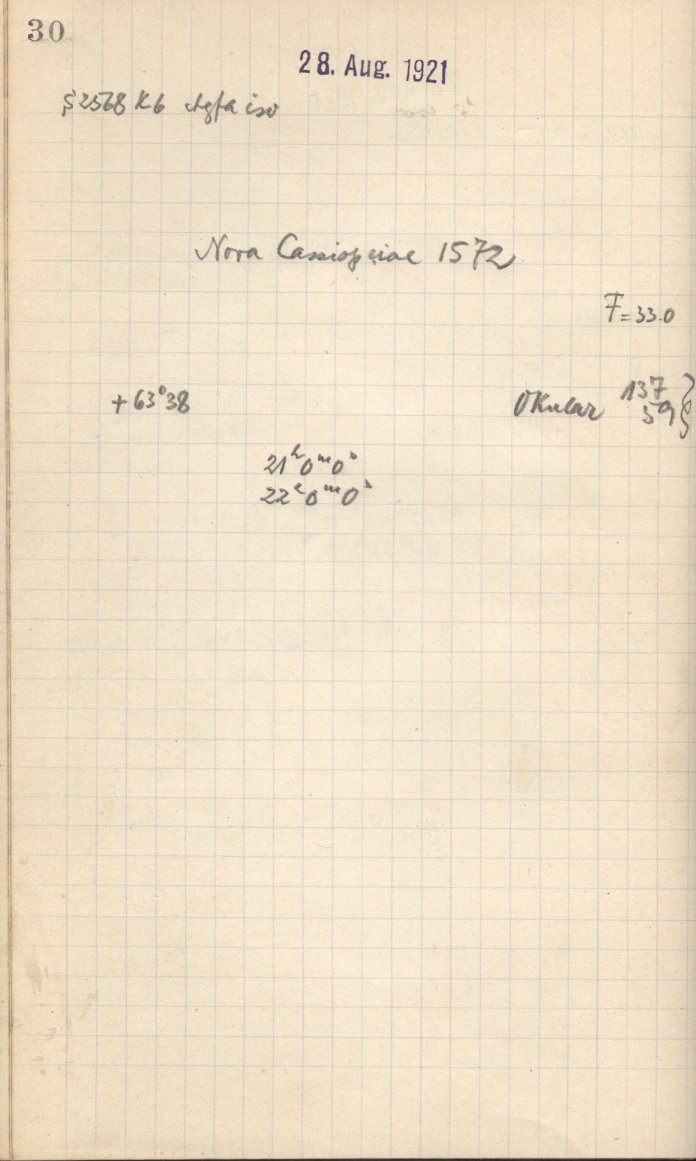 30
28. Aug. 1921
§2568 K6 Agfa iso
Nova Cassiopeiae 1572
F=33.0
+63°38
Okular 137
59 }
21ʰ0ᵐ0ˢ
22ʰ0ᵐ0ˢ